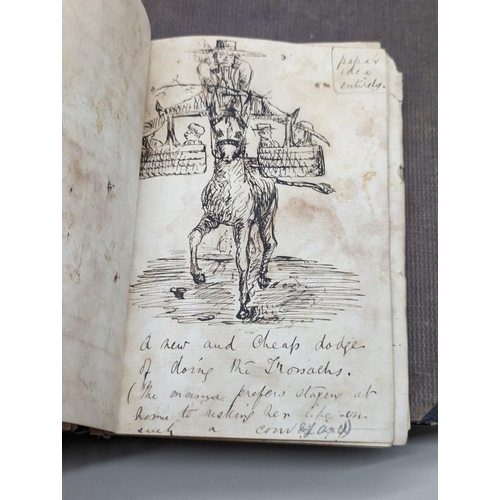 papa's
idea
entirely.
A new and Cheap dodge
of doing the Trossachs.
(The mama prefers staying at
home to risking her life on
such a conveyance)